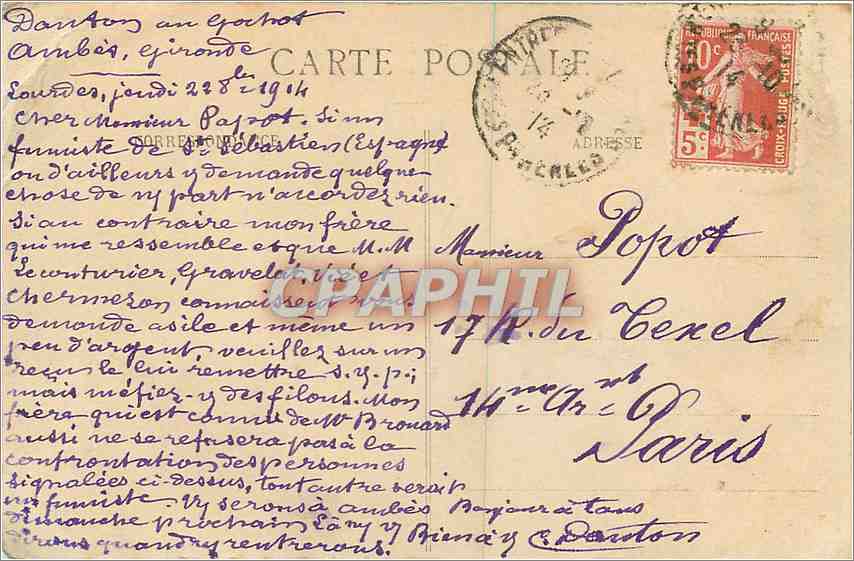 Danton au Gochot
Ambès, Gironde
CARTE POSTALE
Lourdes, jeudi 22 8bre 1914
Cher Monsieur Papot. Si un
CORRESPONDANCE
ADRESSE
fumiste de St Sébastien (Espagne)
ou d'ailleurs y demande quelque
chose de part n'accordez rien.
Si au contraire mon frère
qui me ressemble et que M.M
Lecouturier, Gravelat, et
Chermezon connaissent vous
demande asile et même un
peu d'argent, veuillez sur un
reçu le lui remettre s.v.p.;
mais méfiez-v des filous. Mon
frère qui est connu de Mr Brouard
aussi ne se refusera pas à la
confrontation des personnes
signalées ci-dessus, tout autre serait
un fumiste. Ns serons à Ambès
dimanche prochain Là
dirons quand rentrerons.
Bonjour à tous
Bien à v C. Danton
Monsieur Popot
17 R. du Texel
14me Art
Paris
REPUBLIQUE FRANÇAISE
10c
5c
CROIX-ROUGE
POSTES
14
PYRENEES
CPAPHIL